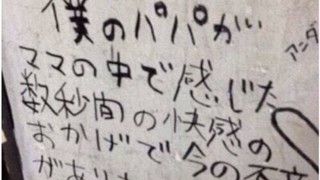 僕のパパが
ママの中で感じた
数秒間の快感の
おかげで今の不
がありま
アンダ